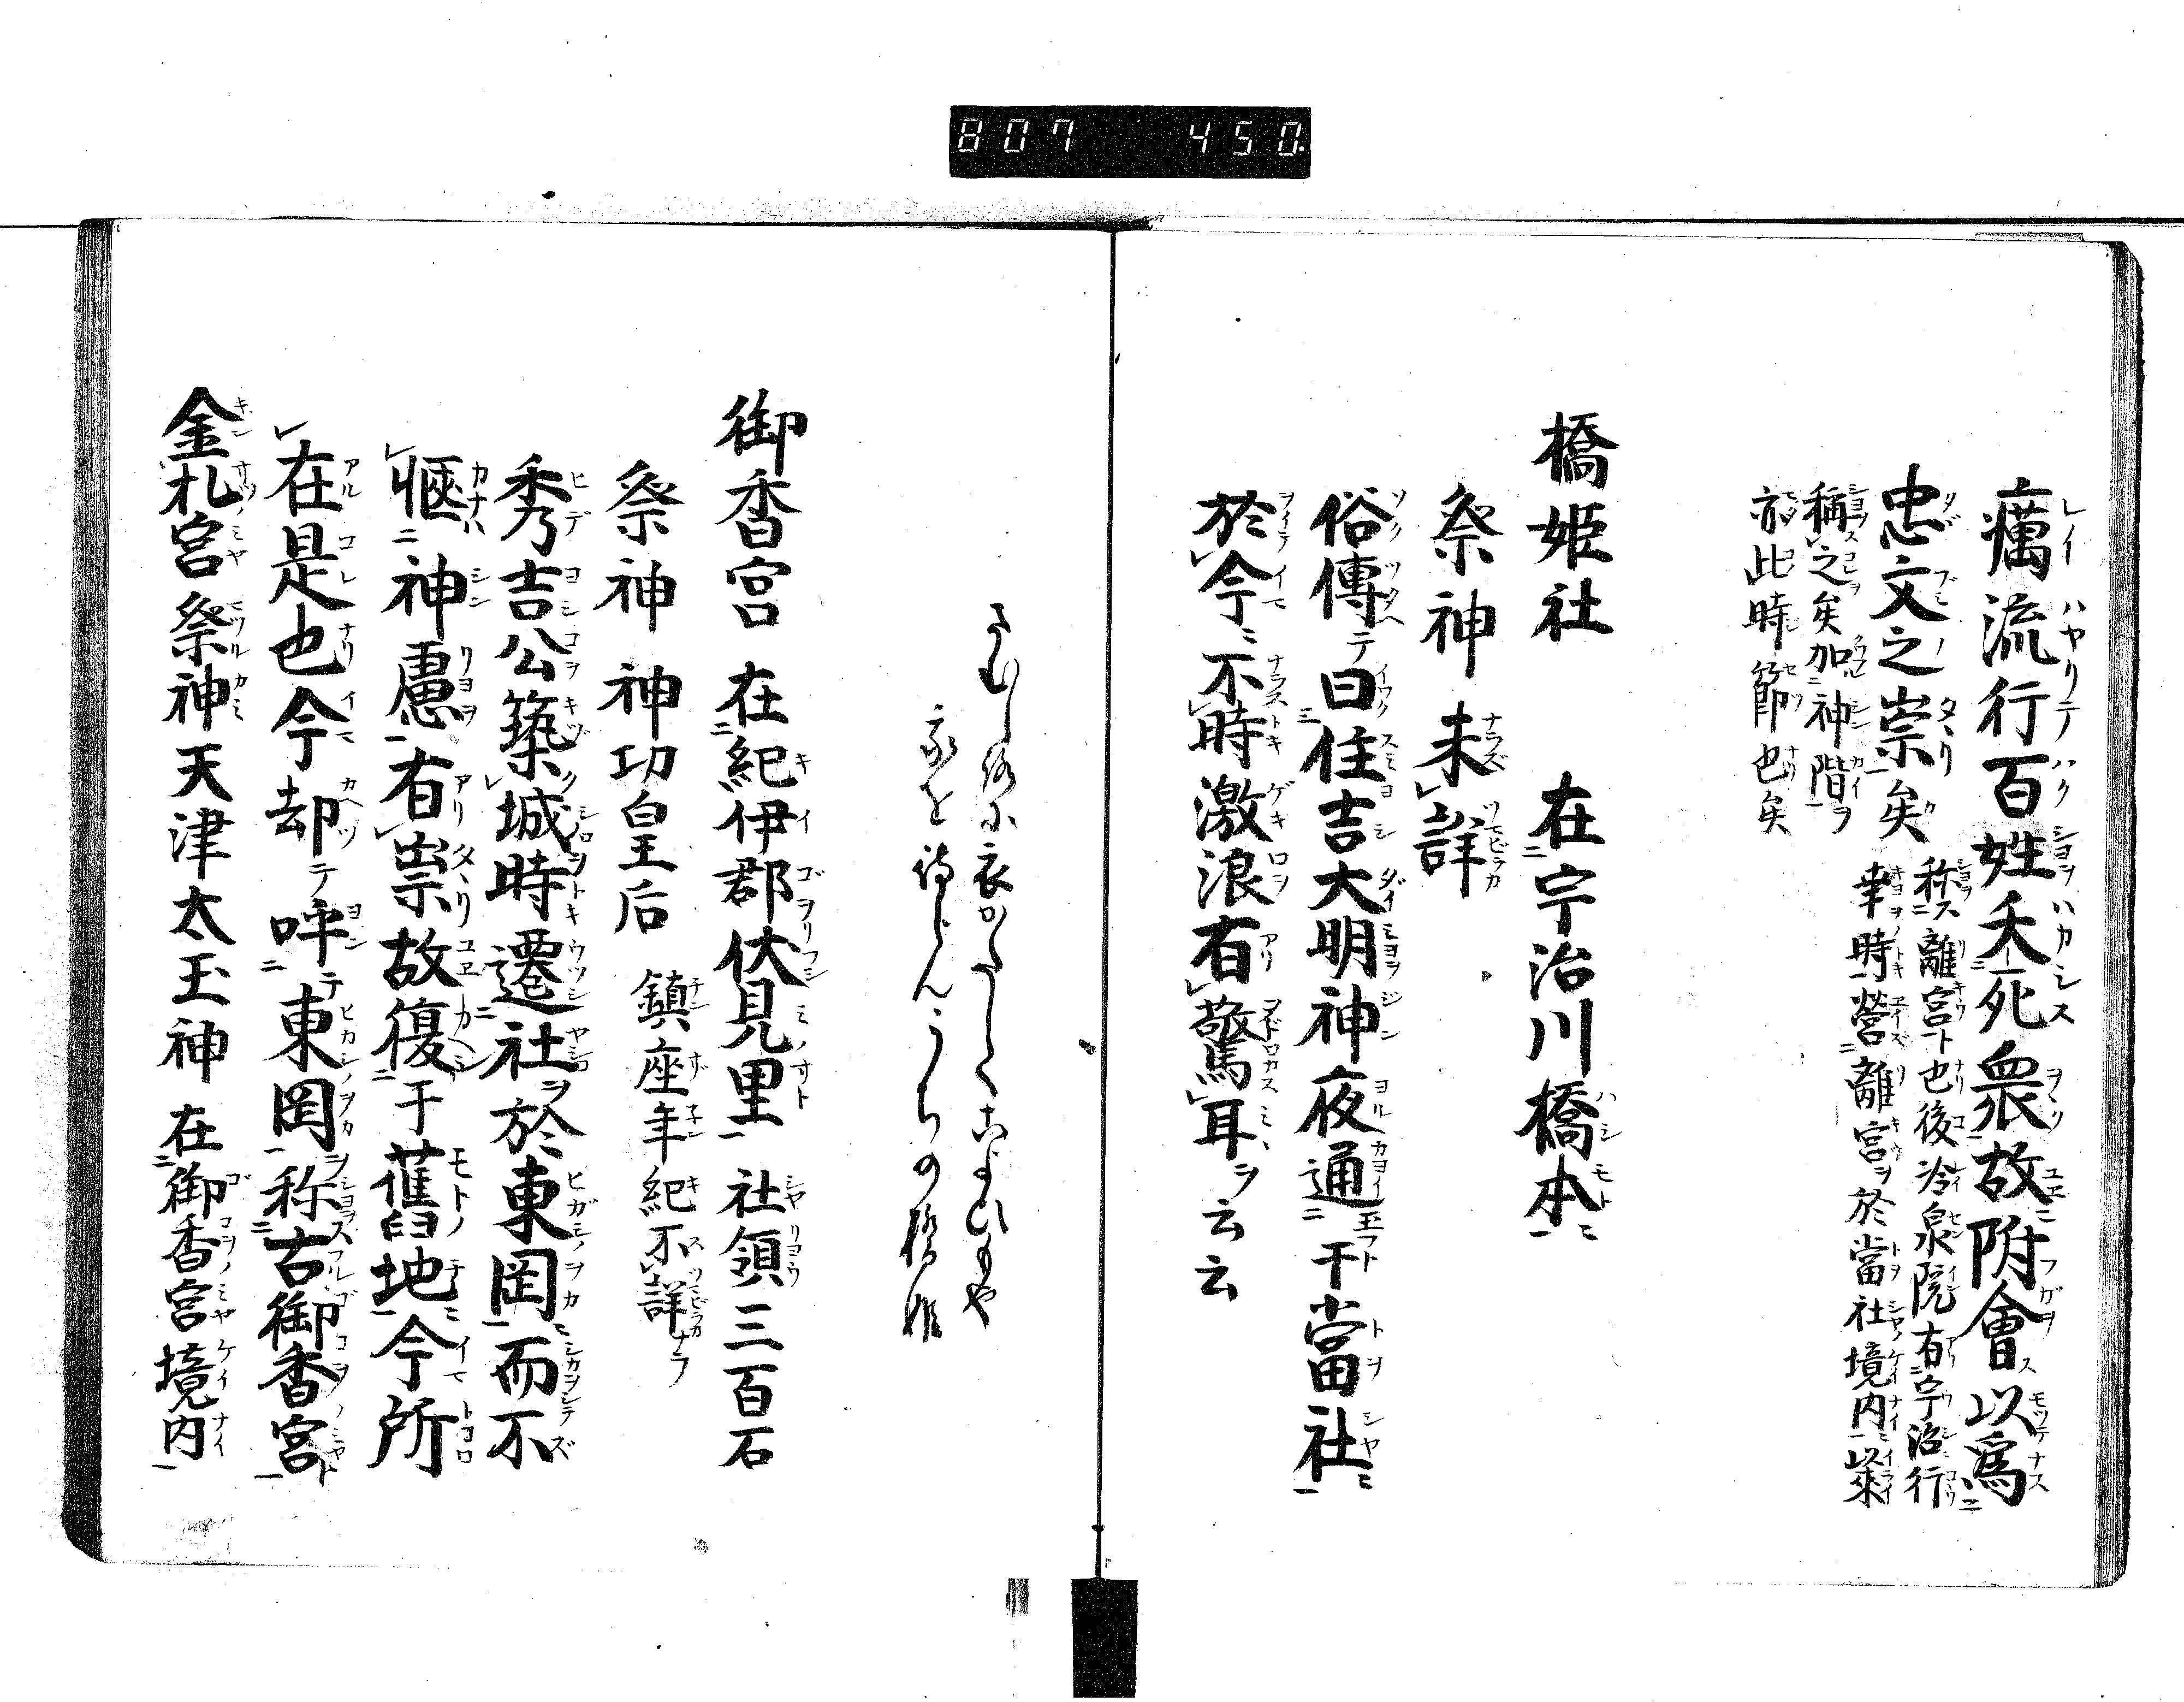 807 450.
癘流行百姓夭死衆故附會以為
忠文之崇矣
称離宮ト也後冷泉院有宇治行
幸時営離宮ヲ於當社境内以来
稱之矣加神階ヲ
亦此時節也矣
橋姫社 在宇治川橋本
祭神未詳
俗傳テ曰住吉大明神夜通于當社
於今不時激浪有驚耳ヲ云云
さむしろに衣かたしくこよひもや
我を待らんうちの橋姫
御香宮 在紀伊郡伏見里 社領三百石
祭神 神功皇后 鎮座年紀不詳
秀吉公築城時遷社ヲ於東岡而不
愜神慮有崇故復于舊地今所
在是也今却テ呼テ東岡称古御香宮
金札宮 祭神天津太玉神 在御香宮境内